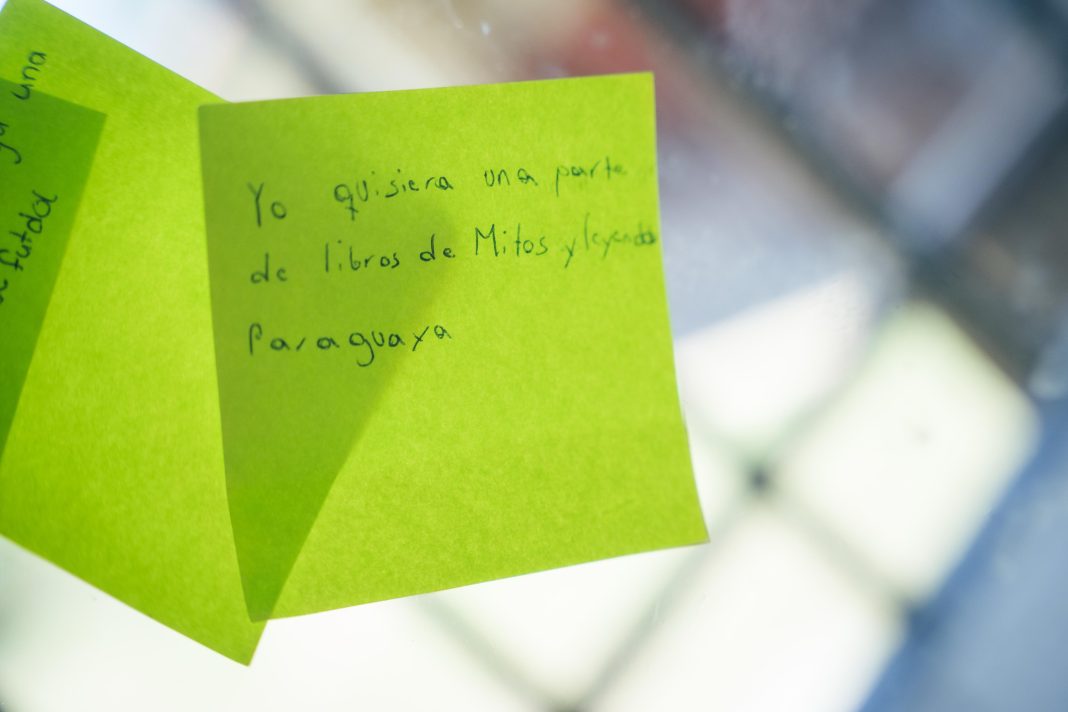 una
Yo quisiera una parte
de libros de Mitos y leyendas
Paraguaya